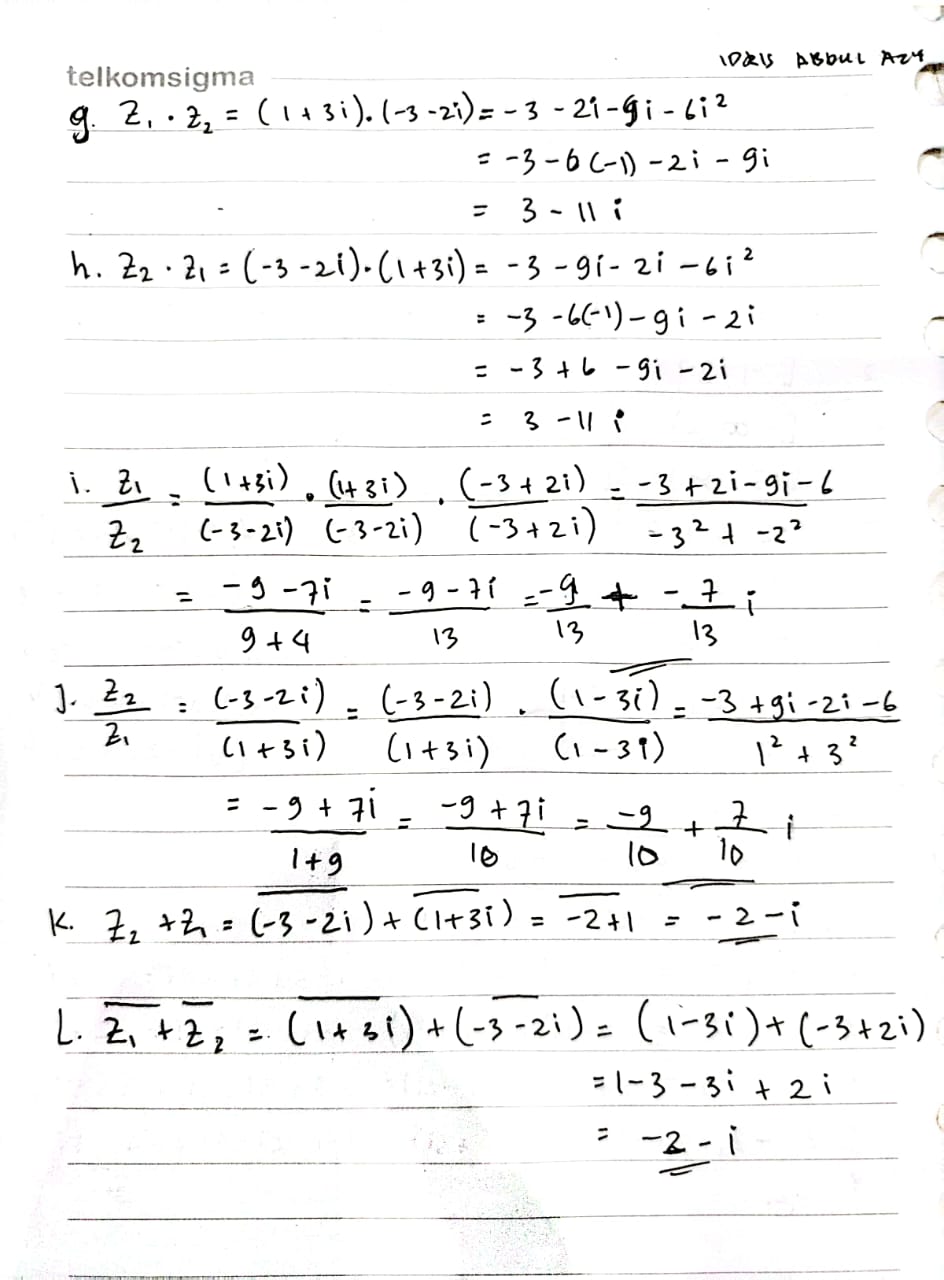 IDRIS ABDUL AZY
telkomsigma
g. Z₁ · Z₂ = (1+3i).(-3-2i) = -3 - 2i - 9i - 6i²
= -3 - 6(-1) - 2i - 9i
= 3 - 11 i
h. Z₂ · Z₁ = (-3-2i)·(1+3i) = -3 - 9i - 2i - 6i²
= -3 -6(-1) - 9i - 2i
= -3 + 6 - 9i - 2i
= 3 - 11 i
i. Z₁/Z₂ = (1+3i)/(-3-2i) · (1+3i)/(-3-2i) · (-3+2i)/(-3+2i) = (-3+2i-9i-6)/(-3² + -2²)
= (-9-7i)/(9+4) = (-9-7i)/13 = -9/13 + -7/13 i
J. Z₂/Z₁ = (-3-2i)/(1+3i) = (-3-2i)/(1+3i) · (1-3i)/(1-3i) = (-3+9i-2i-6)/(1²+3²)
= (-9+7i)/(1+9) = (-9+7i)/10 = -9/10 + 7/10 i
K. Z₂ + Z₁ = (-3-2i) + (1+3i) = -2+1 = -2-i
L. Z̅₁ + Z̅₂ = (1+3i) + (-3-2i) = (1-3i) + (-3+2i)
= 1-3 - 3i + 2i
= -2 - i